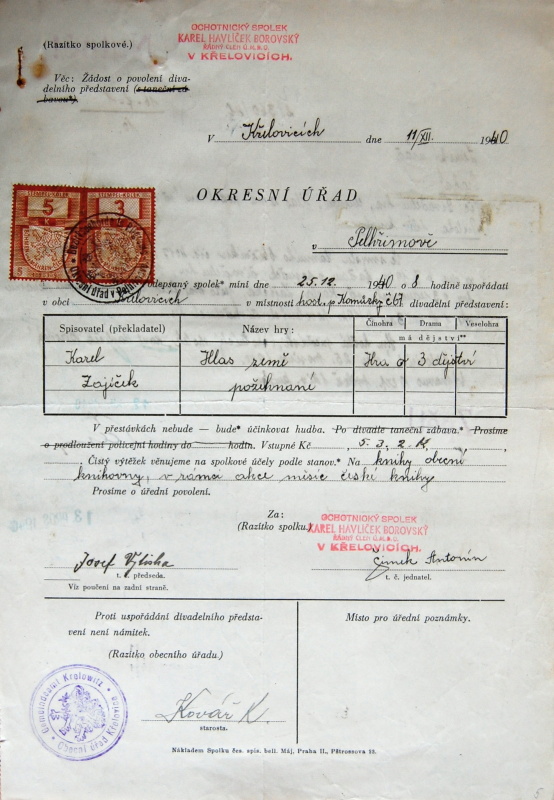 OCHOTNICKÝ SPOLEK
KAREL HAVLÍČEK BOROVSKÝ
ŘÁDNÝ ČLEN Ú.M.D.O.
V KŘELOVICÍCH.
(Razítko spolkové.)
Věc: Žádost o povolení diva-
delního představení (s taneční zá-
bavou*)
V Křelovicích dne 11/XII. 1940
OKRESNÍ ÚŘAD
v Pelhřimově
STEMPEL-KOLEK STEMPEL-KOLEK
5 3
K K
odepsaný spolek* míní dne 25.12. 1940 o 8 hodině uspořádati
v obci Křelovicích v místnosti host. p. divadelní představení:
Spisovatel (překladatel) Název hry: Činohra Drama Veselohra
má dějství**
Karel Hlas země Hra o 3 dějství
Zajíček požehnané
V přestávkách nebude — bude* účinkovat hudba. Po divadle taneční zábava.* Prosíme
o prodloužení policejní hodiny do hodin. Vstupné Kč 5. 3. 2. K,
Čistý výtěžek věnujeme na spolkové účely podle stanov.* Na knihy obecní
knihovny, v rámci akce měsíc české knihy
Prosíme o úřední povolení.
Za:
(Razítko spolku)
OCHOTNICKÝ SPOLEK
KAREL HAVLÍČEK BOROVSKÝ
ŘÁDNÝ ČLEN Ú.M.D.O.
V KŘELOVICÍCH.
Josef Čimek Antonín
t. č. předseda. t. č. jednatel.
Viz poučení na zadní straně.
Proti uspořádání divadelního představení Místo pro úřední poznámky.
vení není námitek.
(Razítko obecního úřadu.)
Gemeindeamt Krelowitz
Obecní úřad Křelovice
Kovář K.
starosta.
Nákladem Spolku čes. spis. bel. Máj, Praha II., Pštrossova 13.
5